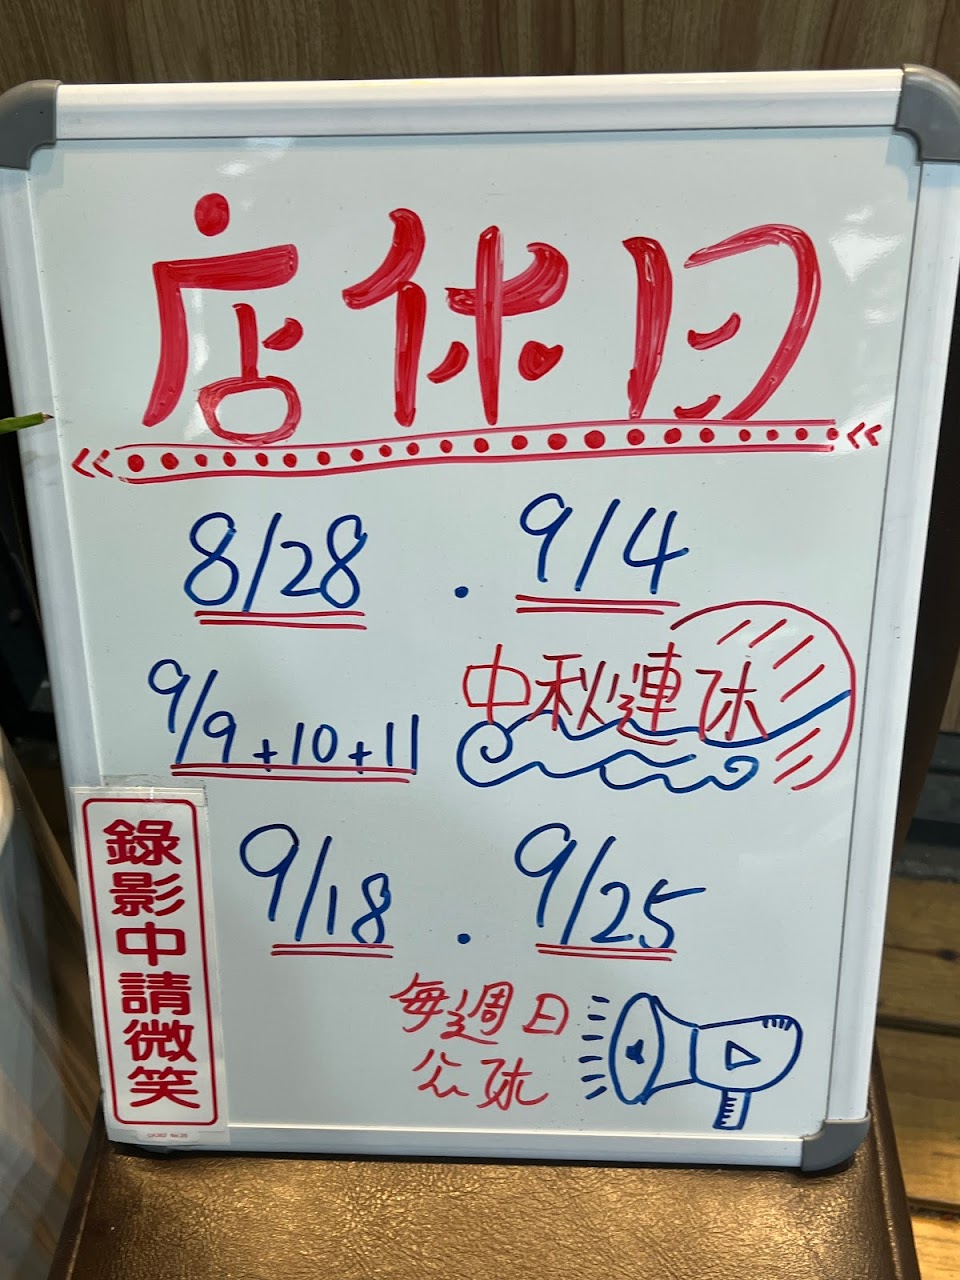 店休日
8/28 . 9/4
9/9+10+11 中秋連休
9/18 . 9/25
每週日
公休
錄影中請微笑